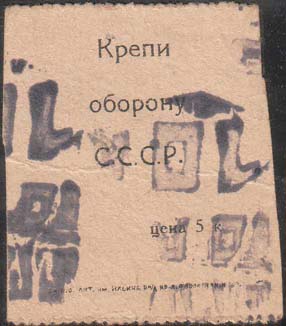 Крепи
оборону
С.С.С.Р.
цена 5 к.